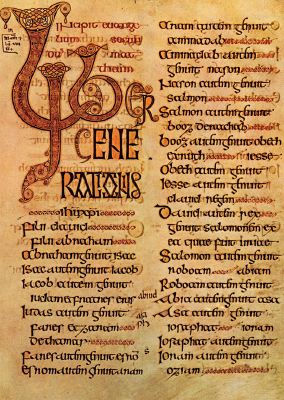 Incipit euange
lium
LIBER
GENE
RATIONIS
ihu xpi
Filii dauid
filii abraham
Abraham autem genuit isac
Isac autem genuit iacob
Iacob autem genuit
iudam et fratres eius
Iudas autem genuit
fares et zaram
de thamar
Fares autem genuit esrom
esrom autem genuit aram
Aram autem genuit
aminadab
Aminadab autem
genuit nason
Nason autem genuit
salmon
Salmon autem genuit
booz de rachab
booz autem genuit obeth
ex ruth iesse
Iesse autem genuit
dauid regem
Dauid autem rex
genuit salomonem ex
ea quae fuit uriae
Salomon autem genuit
roboam abiam
Roboam autem genuit
Abia autem genuit asa
Asa autem genuit
iosaphat ioram
Iosaphat autem
Ioram autem genuit
oziam